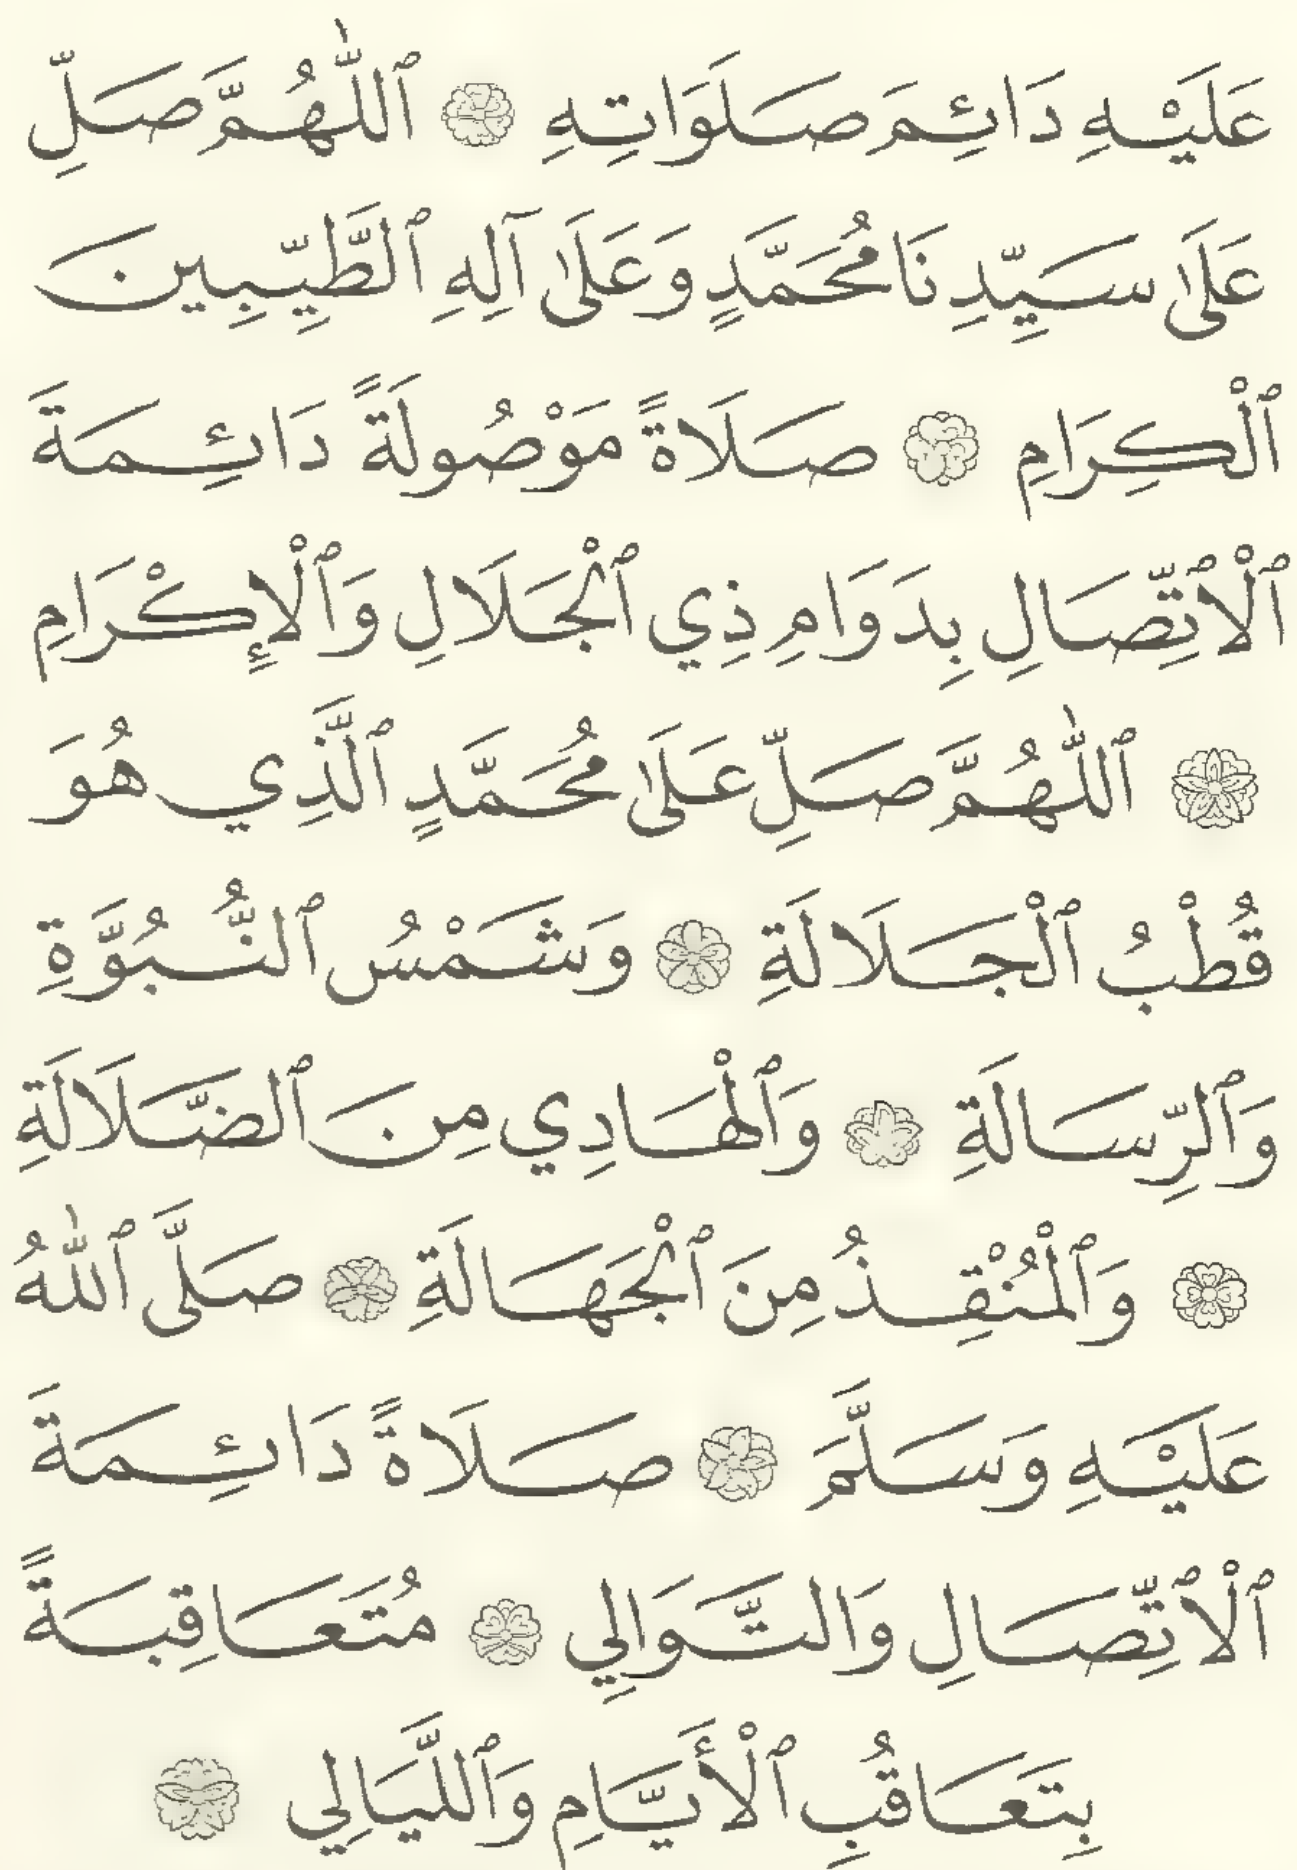 عَلَيْهِ دَائِمَ صَلَوَاتِهِ ۞ ٱللّٰهُمَّ صَلِّ
عَلَىٰ سَيِّدِنَا مُحَمَّدٍ وَعَلَىٰ آلِهِ ٱلطَّيِّبِينَ
ٱلْكِرَامِ ۞ صَلَاةً مَوْصُولَةً دَائِمَةَ
ٱلْاِتِّصَالِ بِدَوَامِ ذِي ٱلْجَلَالِ وَٱلْإِكْرَامِ
۞ ٱللّٰهُمَّ صَلِّ عَلَىٰ مُحَمَّدٍ ٱلَّذِي هُوَ
قُطْبُ ٱلْجَلَالَةِ ۞ وَشَمْسُ ٱلنُّبُوَّةِ
وَٱلرِّسَالَةِ ۞ وَٱلْهَادِي مِنَ ٱلضَّلَالَةِ
۞ وَٱلْمُنْقِذُ مِنَ ٱلْجَهَالَةِ ۞ صَلَّى ٱللّٰهُ
عَلَيْهِ وَسَلَّمَ ۞ صَلَاةً دَائِمَةَ
ٱلْاِتِّصَالِ وَالتَّوَالِي ۞ مُتَعَاقِبَةً
بِتَعَاقُبِ ٱلْأَيَّامِ وَٱللَّيَالِي ۞